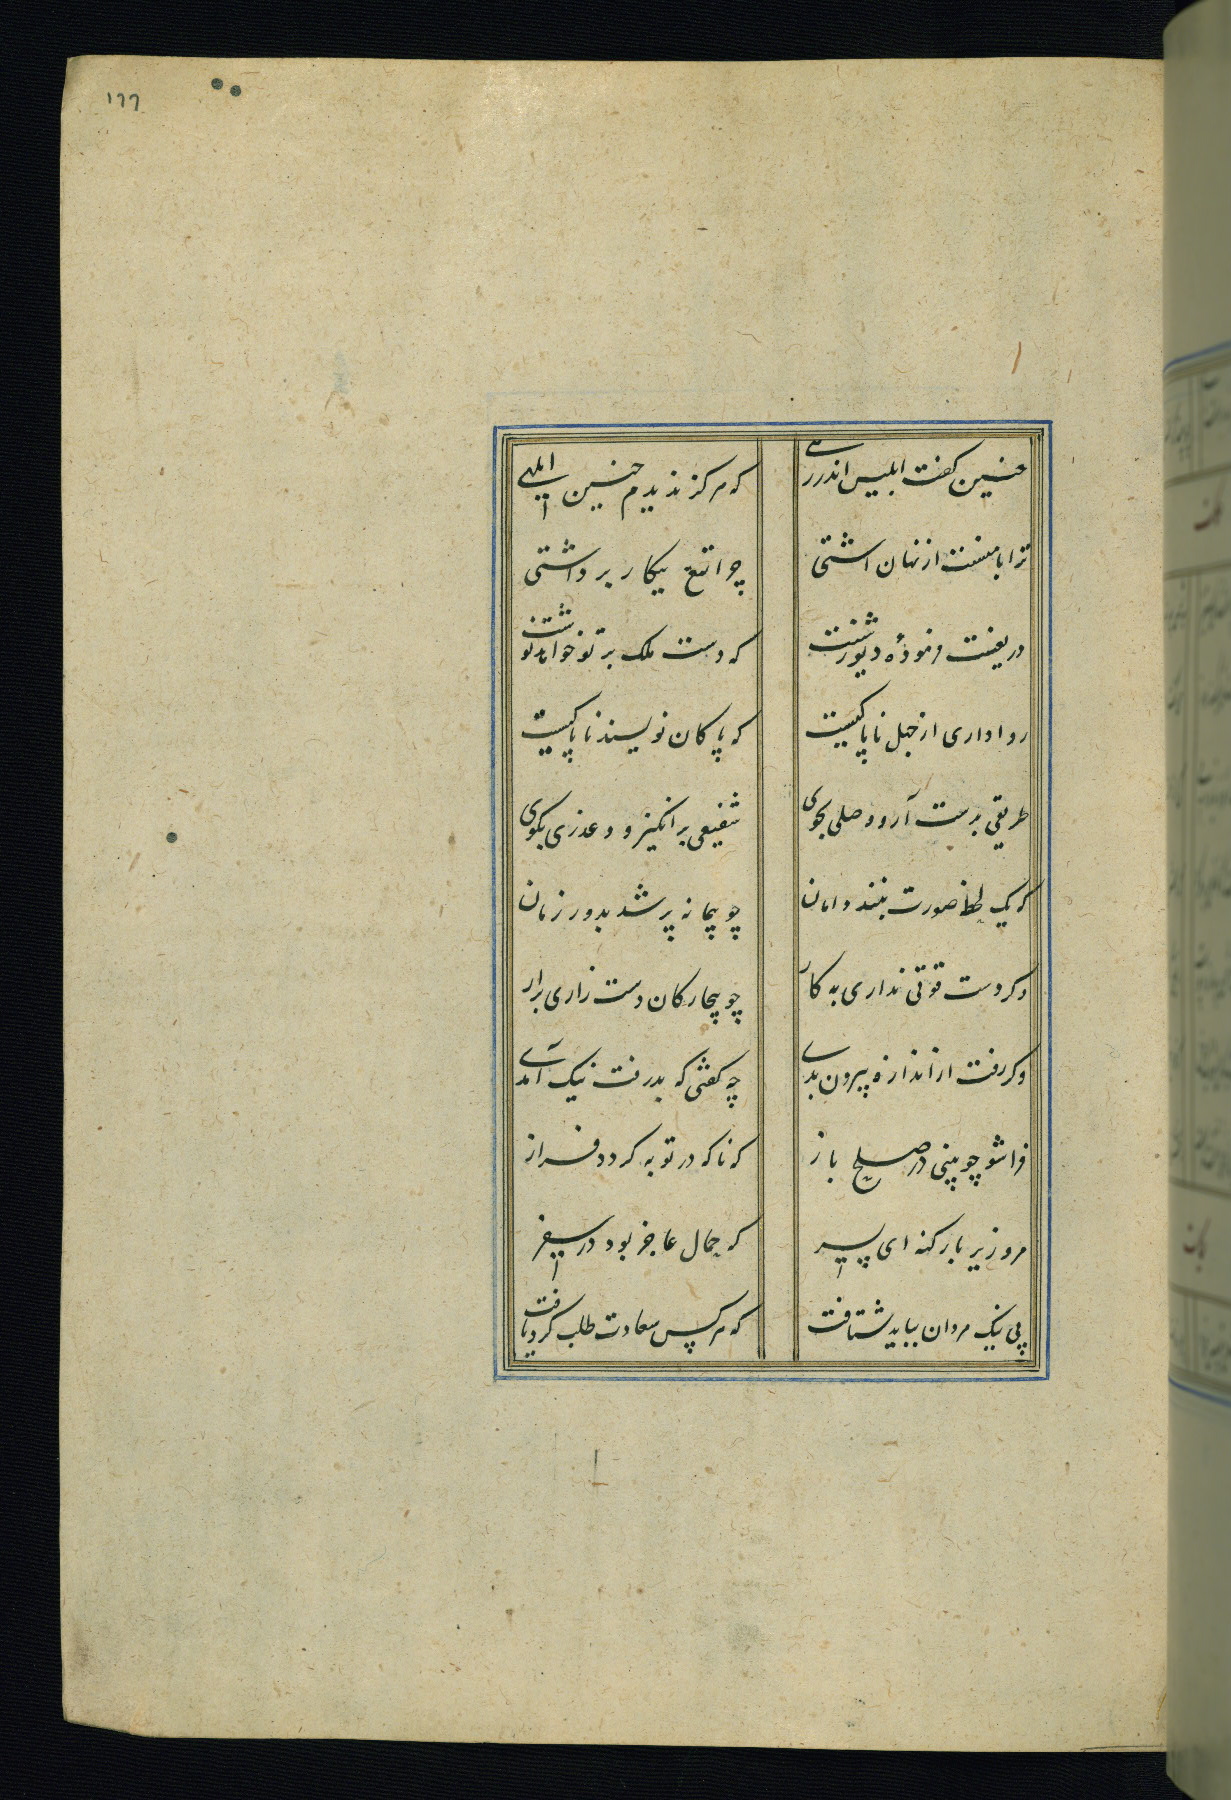 ۱۶۶
چنین گفت ابلیس اندر رهی
که هرگز ندیدم چنین ابلهی
ترا با منست از نهان آشتی
چرا تیغ پیکار برداشتی
دریغست فرمودهٔ دیو زشت
که دست ملک بر تو خواهد نوشت
روا داری از جهل ناپاکیت
که پاکان نویسند ناپاکیت
طریقی بدست آر و صلحی بجوی
شفیعی برانگیز و عذری بگوی
که یک لحظه صورت نبندد امان
چو پیمانه پر شد بدور زمان
وگر دست قوتی نداری به کار
چو بیچارگان دست زاری برآر
وگر رفت از اندازه بیرون بدی
چه گفتی که بد رفت نیک آمدی
فرا شو چو بینی در صلح باز
که ناگه در توبه گردد فراز
مرو زیر بار گنه ای پسر
که حمال عاجز بود در سفر
پی نیک مردان بباید شتافت
که هر کس سعادت طلب کرد یافت